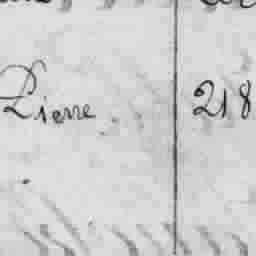 Pierre 218